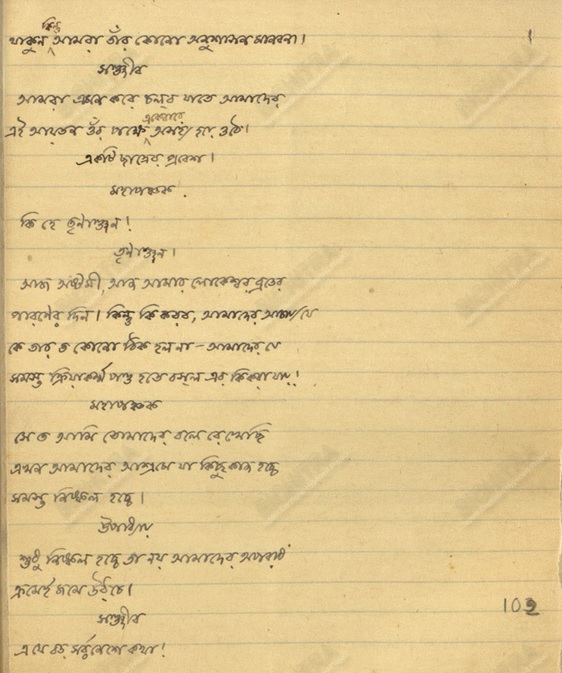 কিন্তু
থাকুন আমরা তাঁর কোনো অনুশাসন মানবনা।
সঞ্জীব
আমরা এমন করে চলব যাতে আমাদের
একেবারে
এই আয়তন ওঁর পক্ষে অসহ্য হয়ে ওঠে।
একটি ছাত্রের প্রবেশ।
মহাপঞ্চক
কি হে তৃণাঞ্জন!
তৃণাঞ্জন।
আজ অষ্টমী, আজ আমার লোকেশ্বর ব্রতের
পারণের দিন। কিন্তু কি করব, আমাদের আচার্য্য যে
কে তার ত কোনো ঠিক হল না — আমাদের যে
সমস্ত ক্রিয়াকর্ম্ম পণ্ড হতে বস্‌ল এর কি করা যায়!
মহাপঞ্চক
সে ত আমি তোমাদের বলে রেখেছি
এখন আমাদের আশ্রমে যা কিছু কাজ হচ্চে
সমস্ত নিষ্ফল হচ্চে।
উপাধ্যায়
শুধু নিষ্ফল হচ্চে তা নয় আমাদের অপরাধ
ক্রমেই জমে উঠ্‌চে।
সঞ্জীব
102
এ যে বড় সর্ব্বনেশে কথা!